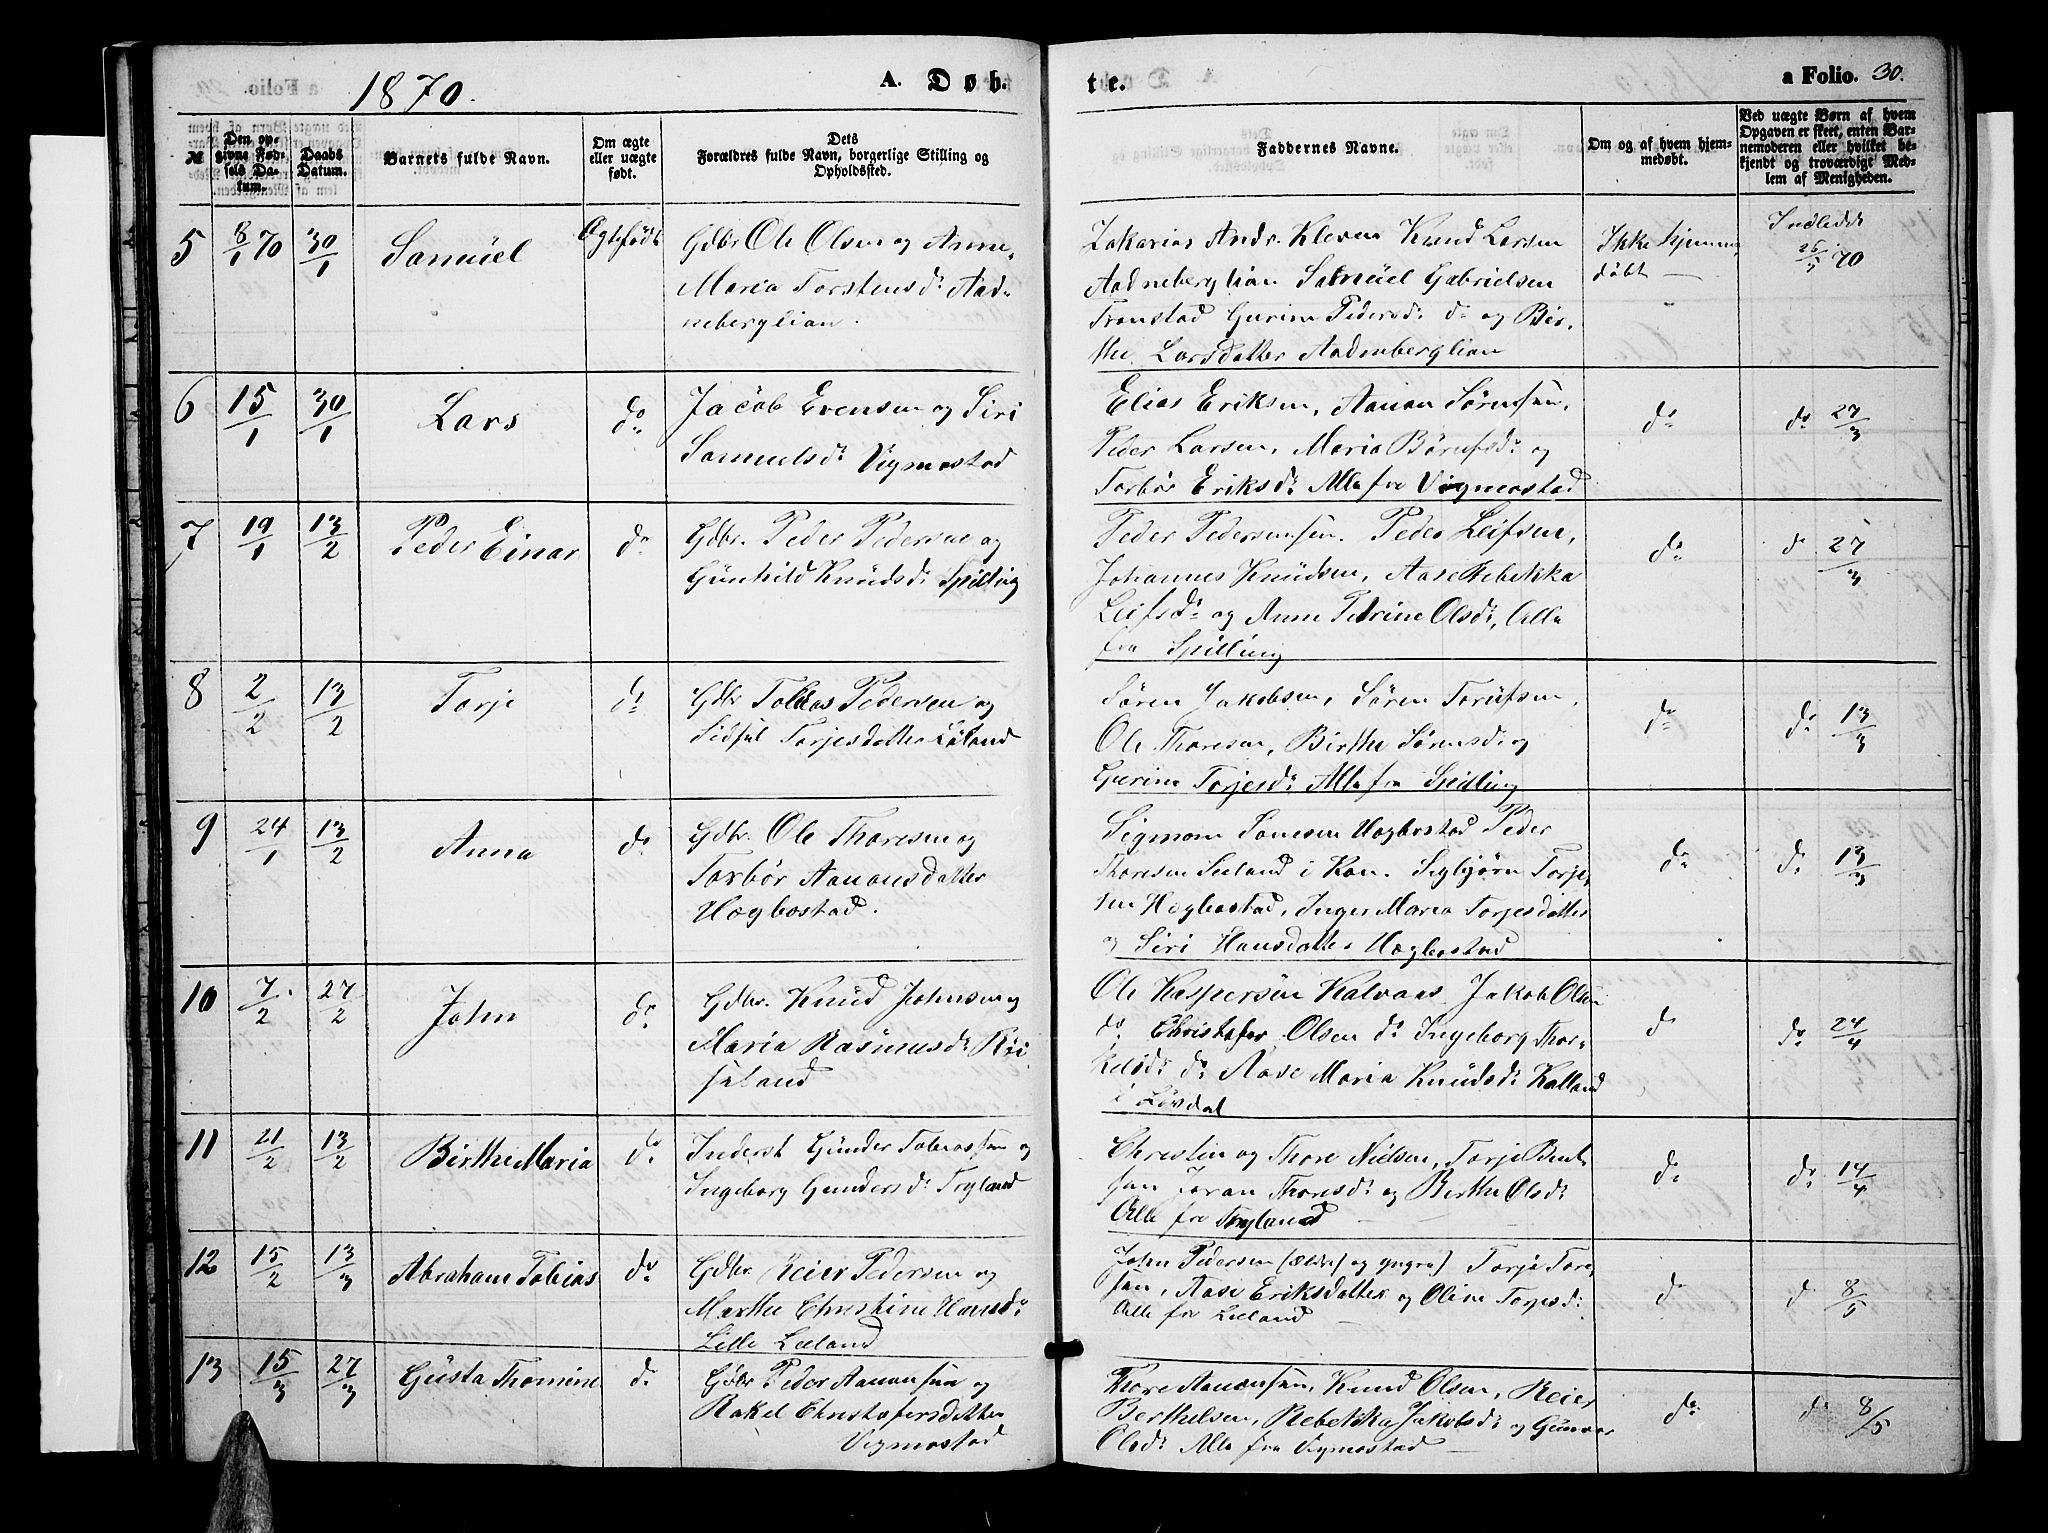 1870.
A. Døb-
te.
a Folio. 30.
№
Den opgivne Fødsels Datum.
Daabs Datum.
Barnets fulde Navn.
Om ægte eller uægte født.
Dets Forældres fulde Navn, borgerlige Stilling og Opholdssted.
Faddernes Navne.
Om og af hvem hjemmedøbt.
Ved uægte Børn af hvem Opgaven er skeet, enten Barnemoderen eller hvilket bekjendt og troværdigt Medlem af Menigheden.
5 8/1 70 30/1 Samüel Ægtefødt
Gdbr Ole Olsen og Anne
Maria Torstensd. Aad-
neberglian.
Zakarias Andr. Kleven Knud Larsen
Aadneberglian Samüel Gabrielsen
Tronstad Gurine Pedersd. do og Bir-
the Larsdatter Aadneberglian
Ikke hjemme
døbt
Indledet
25/5 70
6 15/1 30/1 Lars do
Jacob Evensen og Siri
Samuelsd. Vigmostad
Elias Eriksen, Aanan Sørensen,
Peder Larsen, Maria Børufsd. og
Torbør Eriksd. Alle fra Vigmostad
do
do 27/3
7 19/1 13/2 Peder Einar do
Gdbr. Peder Pedersen og
Günhild Knüdsd. Spilling
Peder Pedersensen. Peder Leifsen,
Johannes Knüdsen, Aase Rebekka
Leifsd. og Anne Petrine Olsd., Alle
fra Spilling
do
do 27/3
8 2/2 13/2 Torje do
Gdbr Tobias Pedersen og
Sidsel Torjesdatter Löland
Søren Jakobsen, Søren Torüfsen,
Ole Thoresen, Birthe Sørensd. og
Gurine Torjesd. Alle fra Spilling
do
do 13/3
9 24/1 13/2 Anna do
Gdbr. Ole Thoresen og
Torbør Aanansdatter
Hægbostad.
Sigmom Tonesen Hægbostad Peder
Thoresen Leeland i Kon. Sigbjørn Torje-
sen Hægbostad, Inger Maria Torjesdatter
og Siri Hansdatter Hægbostad
do
do 13/3
10 7/2 27/2 John do
Gdbr. Knüd Johnsen og
Maria Rasmusd. Röi
seland
Ole Kaspersön Halvaas Jakob Olsen
do Christofer Olsen do Ingeborg Thor-
kelsd. do Aase Maria Knüdsd. Kalland
i
do
do 24/4
11 21/2 13/2 Birthe Maria do
Inderst Günder Tobiassen og
Ingeborg Gundersd. Tryland
Christen og Thore Nielsen, Torje Bent
sen Joran Thoresd. og Birthe Olsd.
Alle fra Tryland
do
do 14/4
12 15/2 13/3 Abraham Tobias do
Gdbr. Reier Pedersen og
Marthe Christine Hansd.
Lille Leeland
John Pedersen (ældre og yngre) Torje Tore
sen, Aase Eriksdatter og Oline Torjesd.
Alle fra Leeland
do
do 8/5
13 15/3 27/3 Güsta Thomine do
Gdbr Peder Aanensen og
Rakel Christofersdatter
Vigmostad
Thore Aanensen, Knud Olsen, Reier
Berthelsen, Rebekka Jakobsd. og Gunvor
Olsd. Alle fra Vigmostad
do
do 8/5